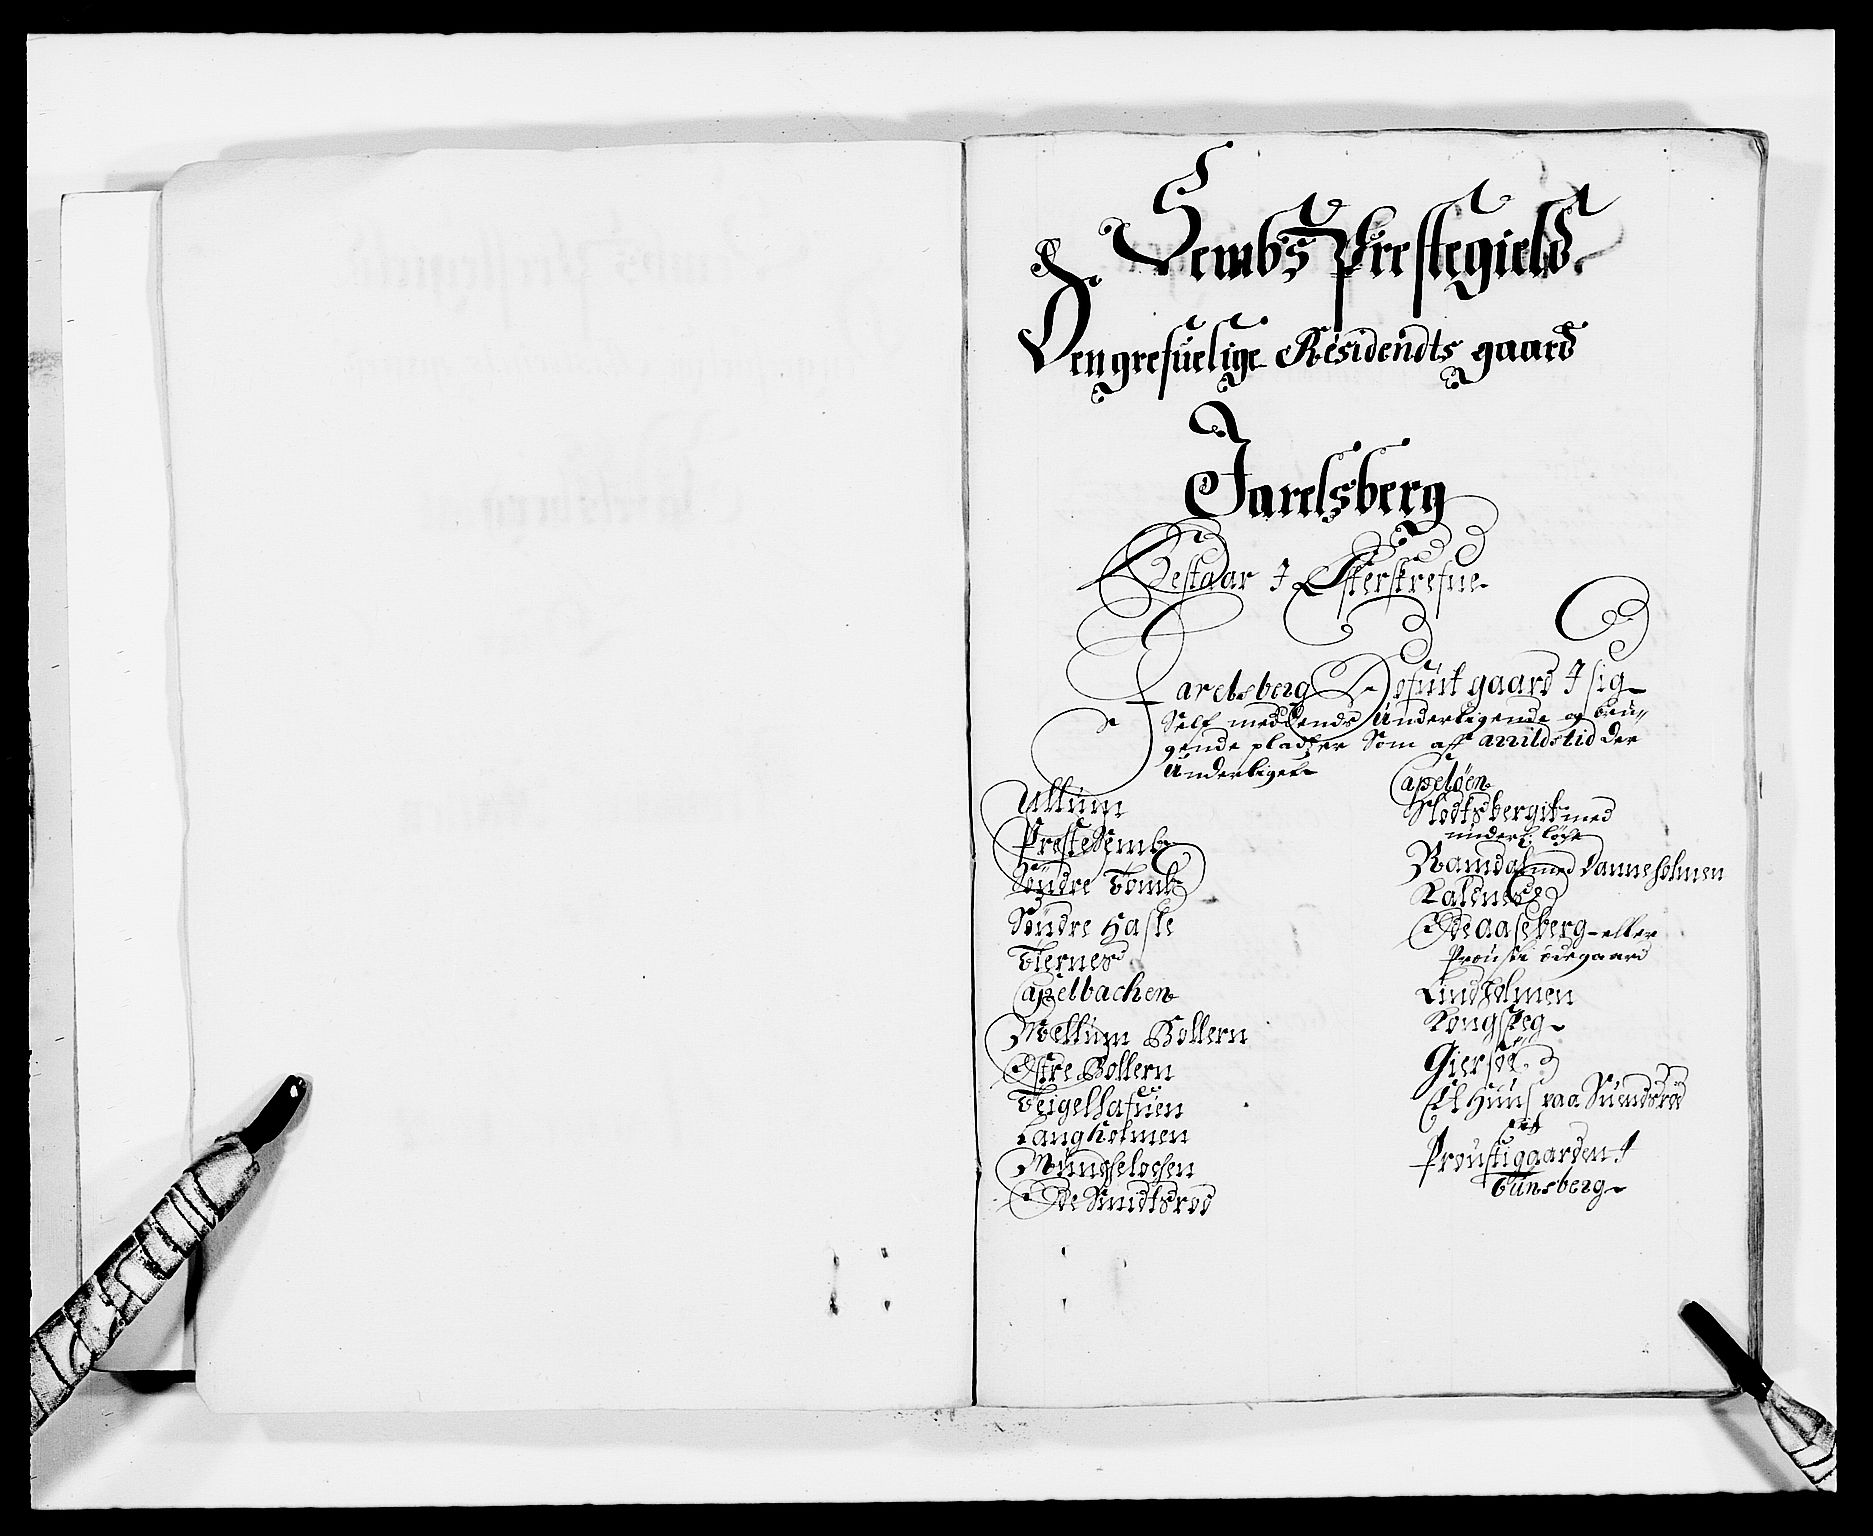 Sembs Prestegield
Den grefuelige Residendts gaard
Jarelsberg
Bestaar J Efterskrefne
Jarelsberg Hofuit gaard J sig
Self med Dends Underligende og bru„
gende pladtzer Som aff arrilds tid der
Underligett
Ullum
Prestesemb
Søndre Tomb
Søndre Hasle
Tiernes
Capelbachen
Mellum Bollern
Østre Bollern
Teigelhafuen
Langholmen
Øde Smidtsrød
Capeløen
Slodtsbergit med
underl: løche
Ramdal med Danneholmen
Kaldnes
Øde aaseberg eller
Prousti ødegaard
Lindholmen
Kongseg
Giersøe
Et Huus paa Suendsrød
og
Proustigaarden J
Tunsberg